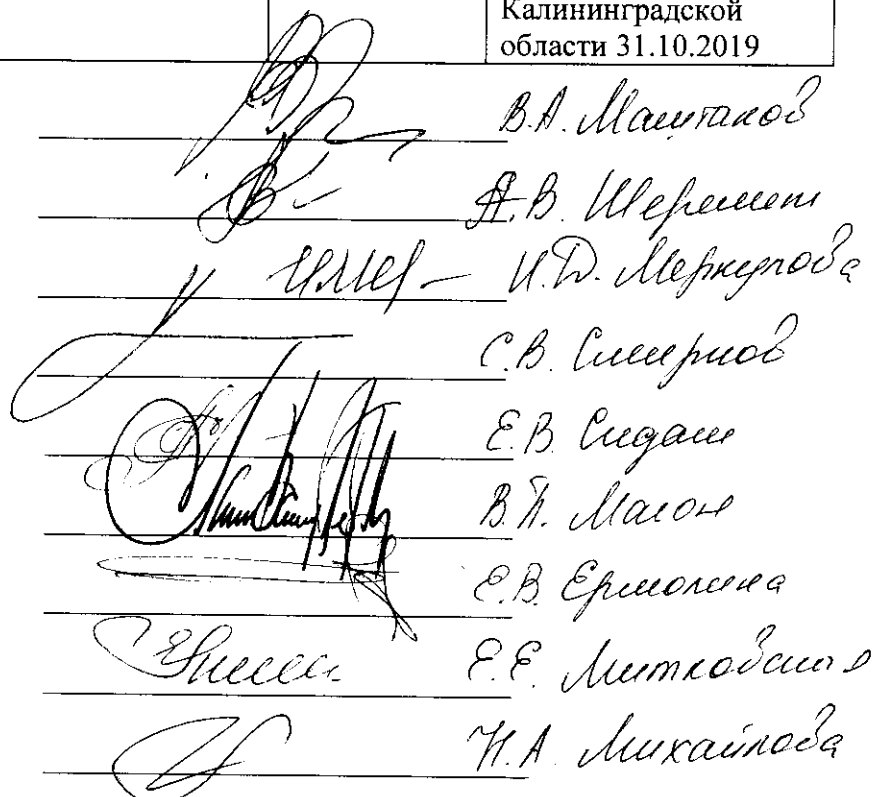 Калининградской
области 31.10.2019
В.А. Маштаков
А.В. Шеремет
И.Д. Меркулова
С.В. Смирнов
Е.В. Сидаш
В.П.
Е.В. Ермолина
Е.Е. Митковская
Н.А. Михайлова